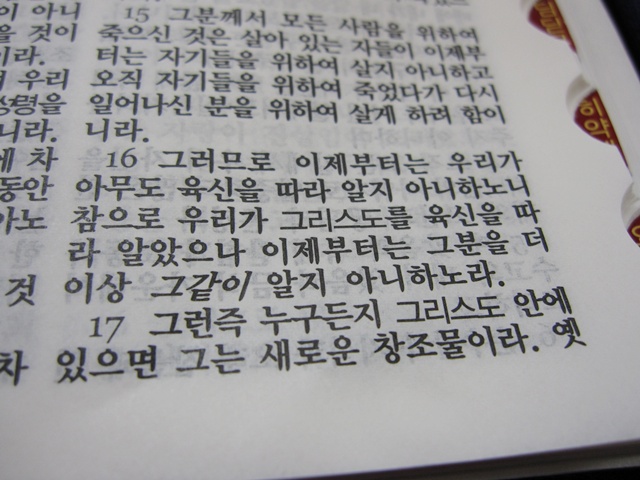 이 아니
을 것이
이라.
우리
성령을
니라.
에 차
동안
아노
것
차
15 그분께서 모든 사람을 위하여
죽으신 것은 살아 있는 자들이 이제부
터는 자기들을 위하여 살지 아니하고
오직 자기들을 위하여 죽었다가 다시
일어나신 분을 위하여 살게 하려 함이
니라.
16 그러므로 이제부터는 우리가
아무도 육신을 따라 알지 아니하노니
참으로 우리가 그리스도를 육신을 따
라 알았으나 이제부터는 그분을 더
이상 그같이 알지 아니하노라.
17 그런즉 누구든지 그리스도 안에
있으면 그는 새로운 창조물이라. 옛
히
약